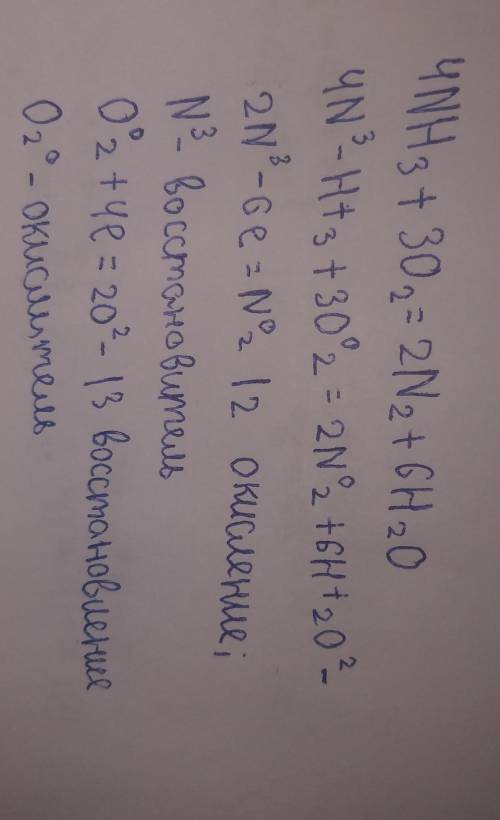 4NH₃ + 3O₂ = 2N₂ + 6H₂O
4N³-H+₃ + 3O⁰₂ = 2N⁰₂ + 6H+₂O²-
2N³-6e = N⁰₂ | 2 окисление;
N³- восстановитель
O⁰₂ + 4e = 2O²- | 3 восстановление
O₂⁰ - окислитель